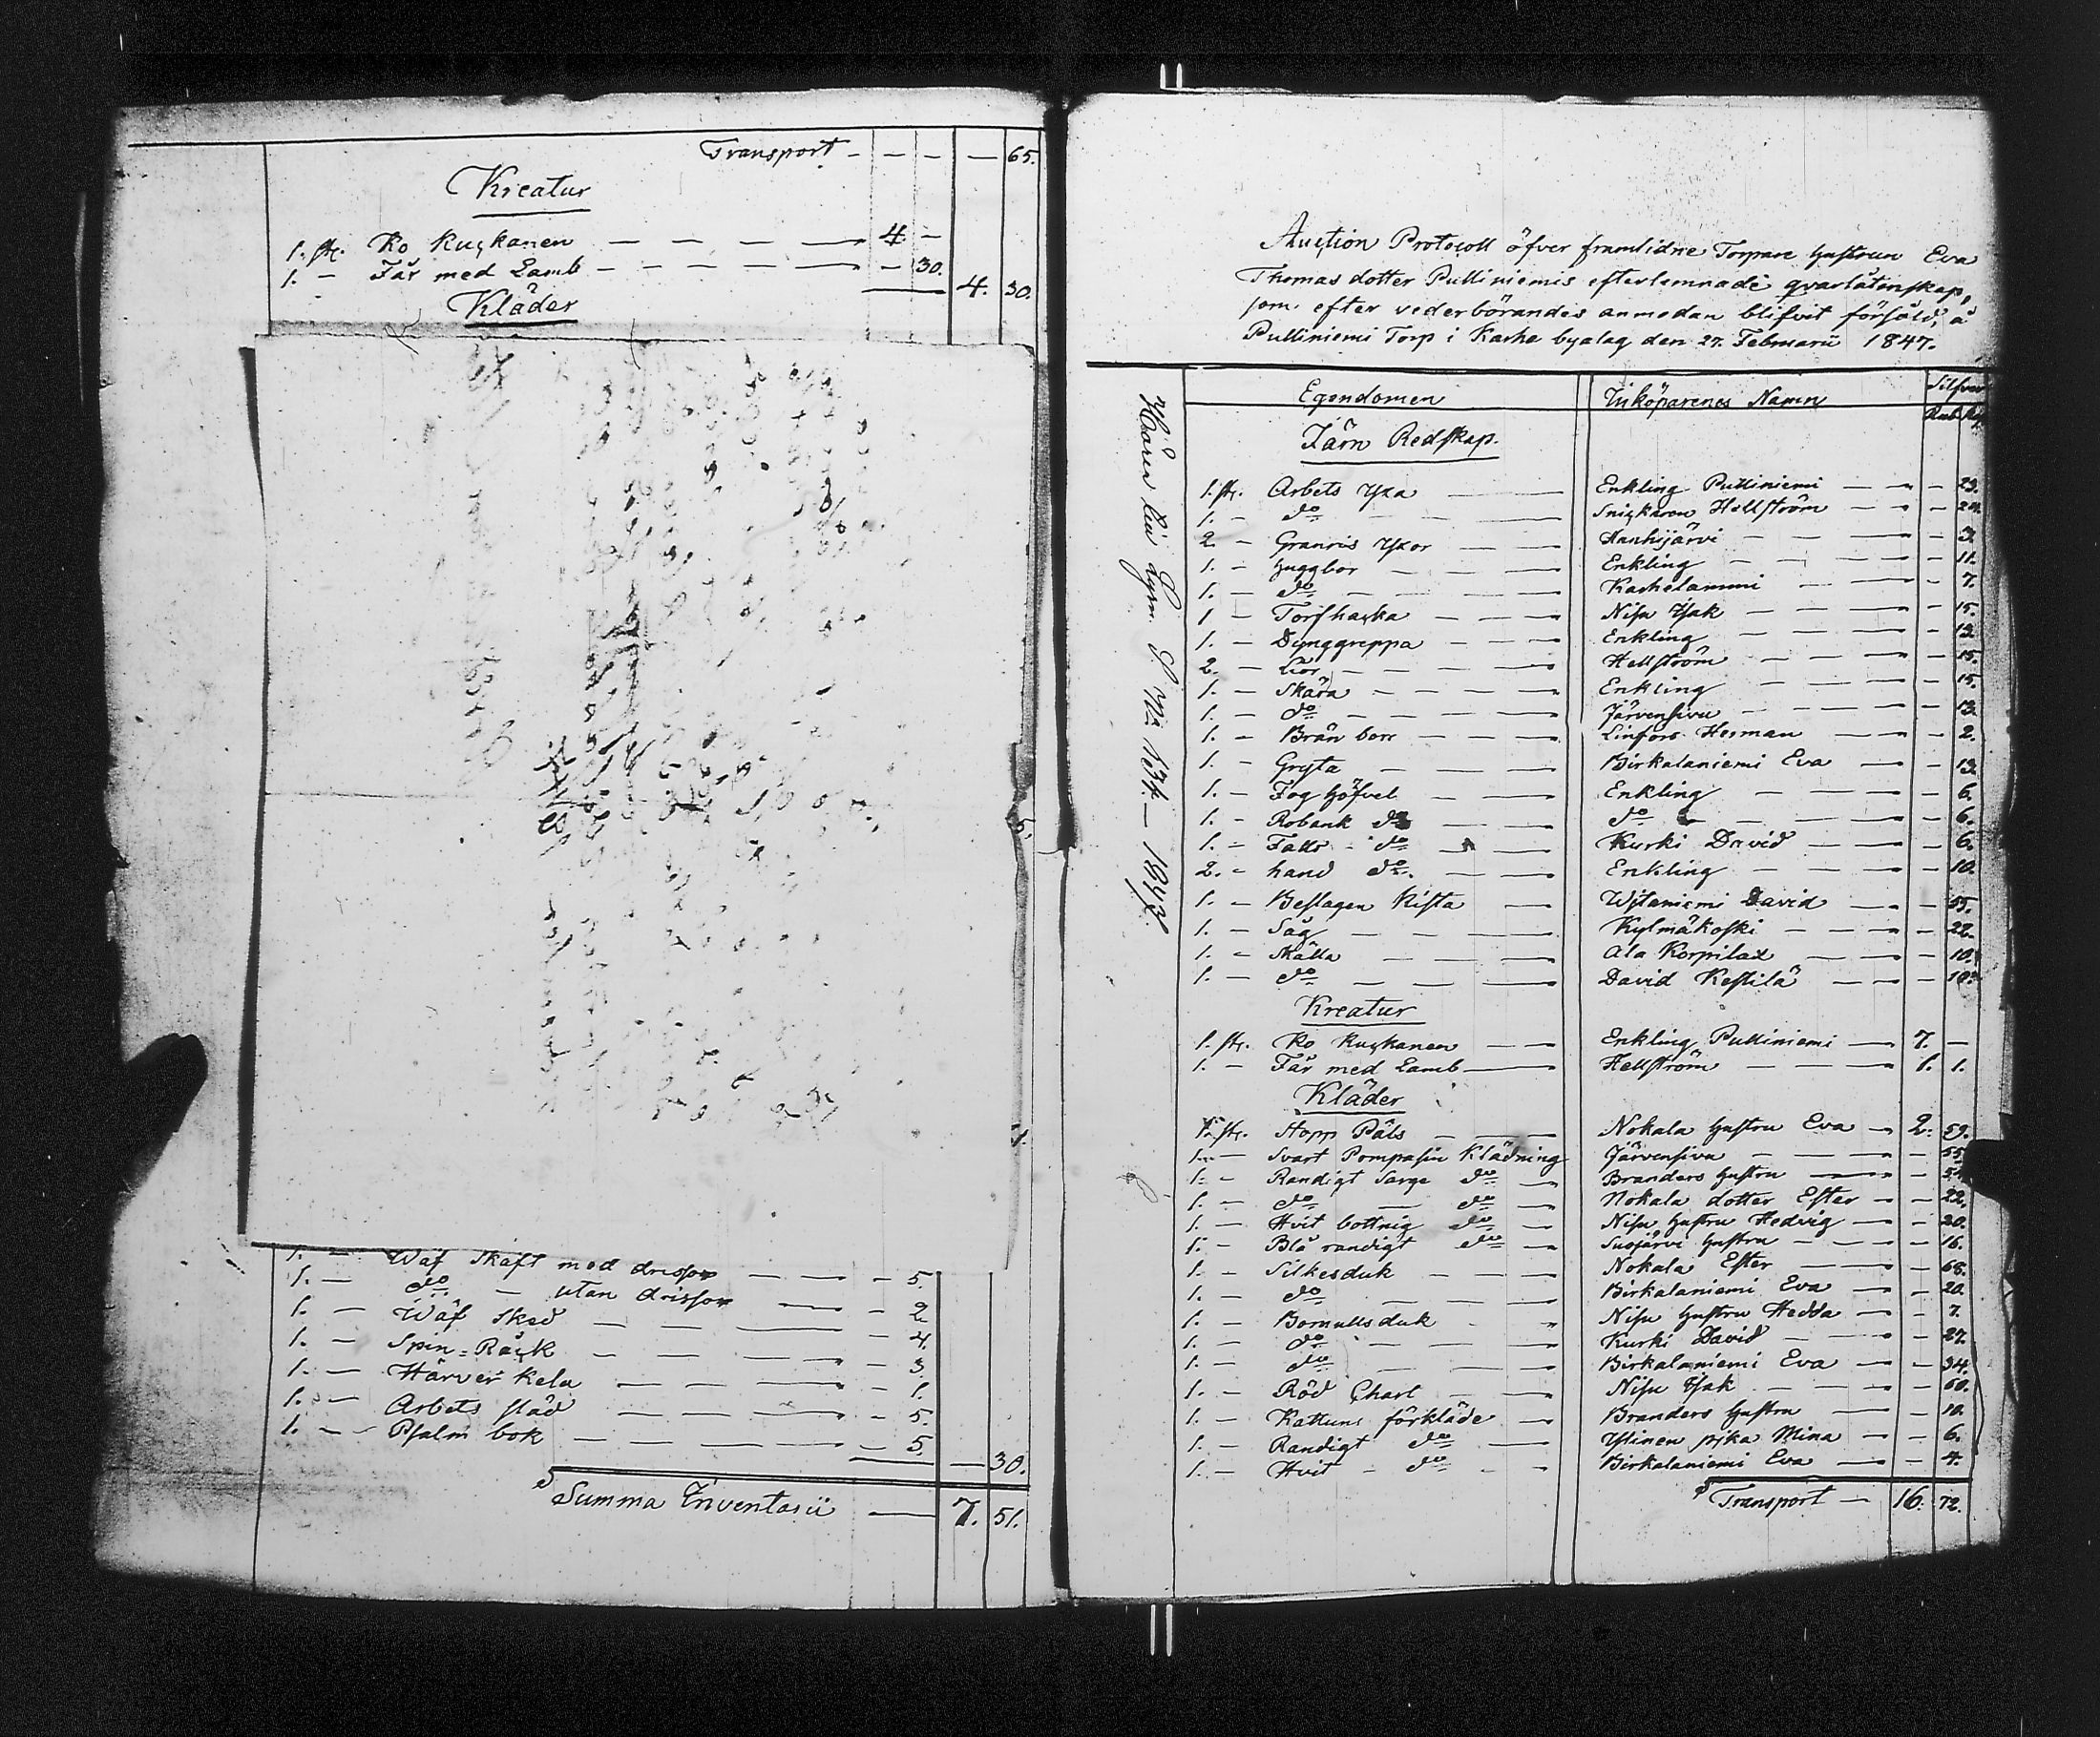 Transport - - - — 65.
Kreatur
1. st. Ko Kuckanen — — — — 4. -
1. - Får med Lamb - — — — - 30. 4. 30.
Kläder
5.
1. — Wäf Skaft med drissor — — - 5.
1. — do - utan drissor — - 2.
1. — Wäf sked — — — - 4.
1. — Spin-Råck — — — — - 3.
1. — Härver kela — — — - 1.
1. — Arbets släd — — — - 5.
1. — Psalm bok — — — — - 5. — 30.
Summa Inventarii — 7. 51.
Auction Protocoll öfver framlidne Torpare hustrun Eva
Thomas dotter Pulliniemis efterlemnade qvarlåtenskap,
som efter vederbörandes anmodan blifvit försåld, å
Pulliniemi Torp i Karhe byalag den 27. Februarii 1847.
Egendomen Inköparenes Namn Silfver
Rub. Kop
Järn Redskap.
1. st. Arbets Yxa — Enkling Pulliniemi — — - 23.
1. - do — — Snickaren Hellström - — - 20.
2. - Granris Yxor — — Hanhijärvi - — — - 3.
1. - Huggbor — — — Enkling — — — - 11.
1. - do — — — Karhelammi — — - 7.
1 - Torfhacka — — — Nisu Isak — — — - 15.
1. - Dynggreppa - — — Enkling — — — - 13.
2. - Liar — — — Hellström — — — - 15.
1. - Skära — — — — Enkling — — — - 15.
1. - do — — — — Järvensivu — — — - 13.
1. - Brån borr — — — Linfors Herman — — - 2.
1. - Gryta — — — Birkalaniemi Eva — - 13.
1. - Fog höfvel — — Enkling — — — - 6.
1. - Robank do — — do — — — - 6.
1. - Falts - do — — Kurki David — — - 6.
2. - hand do. — — Enkling — — — - 10.
1. - Beslagen Kista — Wijtaniemi David — - 55.
1. - Såg — — — Kylmäkoski — — — - 22.
1. - Skälla — — — Ala Korpilax — — - 10.
1. — do — — — David Kestilä — — - 10.
Kreatur
1. st. Ko Kuckanen — — Enkling Pulliniemi — 7. —
1. - Får med Lamb — Hellström — — — 1. 1.
Kläder
1. st. Stopp Päls — — Nokala hustru Eva — 2. 59.
1. — Svart Pompasin Klädning Järvensivu — — — - 55.
1. - Randigt Sarge do — Branders hustru — — -
1. - do — do — Nokala dotter Ester — - 22.
1. — Hvit bottnig do — Nisu hustru Hedvig — - 20.
1. - Blå randigt do — Suojärvi hustru — — - 16.
1. - Silkesduk — — — Nokala Ester — — - 68.
1. - do — — — Birkalaniemi Eva — - 20.
1. - Bomullsduk - - Nisu hustru Hedda — - 7.
1. - do — — — Kurki David — — - 27.
1. - do — — — Birkalaniemi Eva — - 34.
1. - Röd Charl — — Nisu Isak — — — - 60.
1. - Kattuns förkläde — Branders hustru — — - 10.
1. - Randigt do — Ylinen pika Mina — - 6.
1. - Hvit - do - - Birkalaniemi Eva — - 4.
Transport — 16. 72.